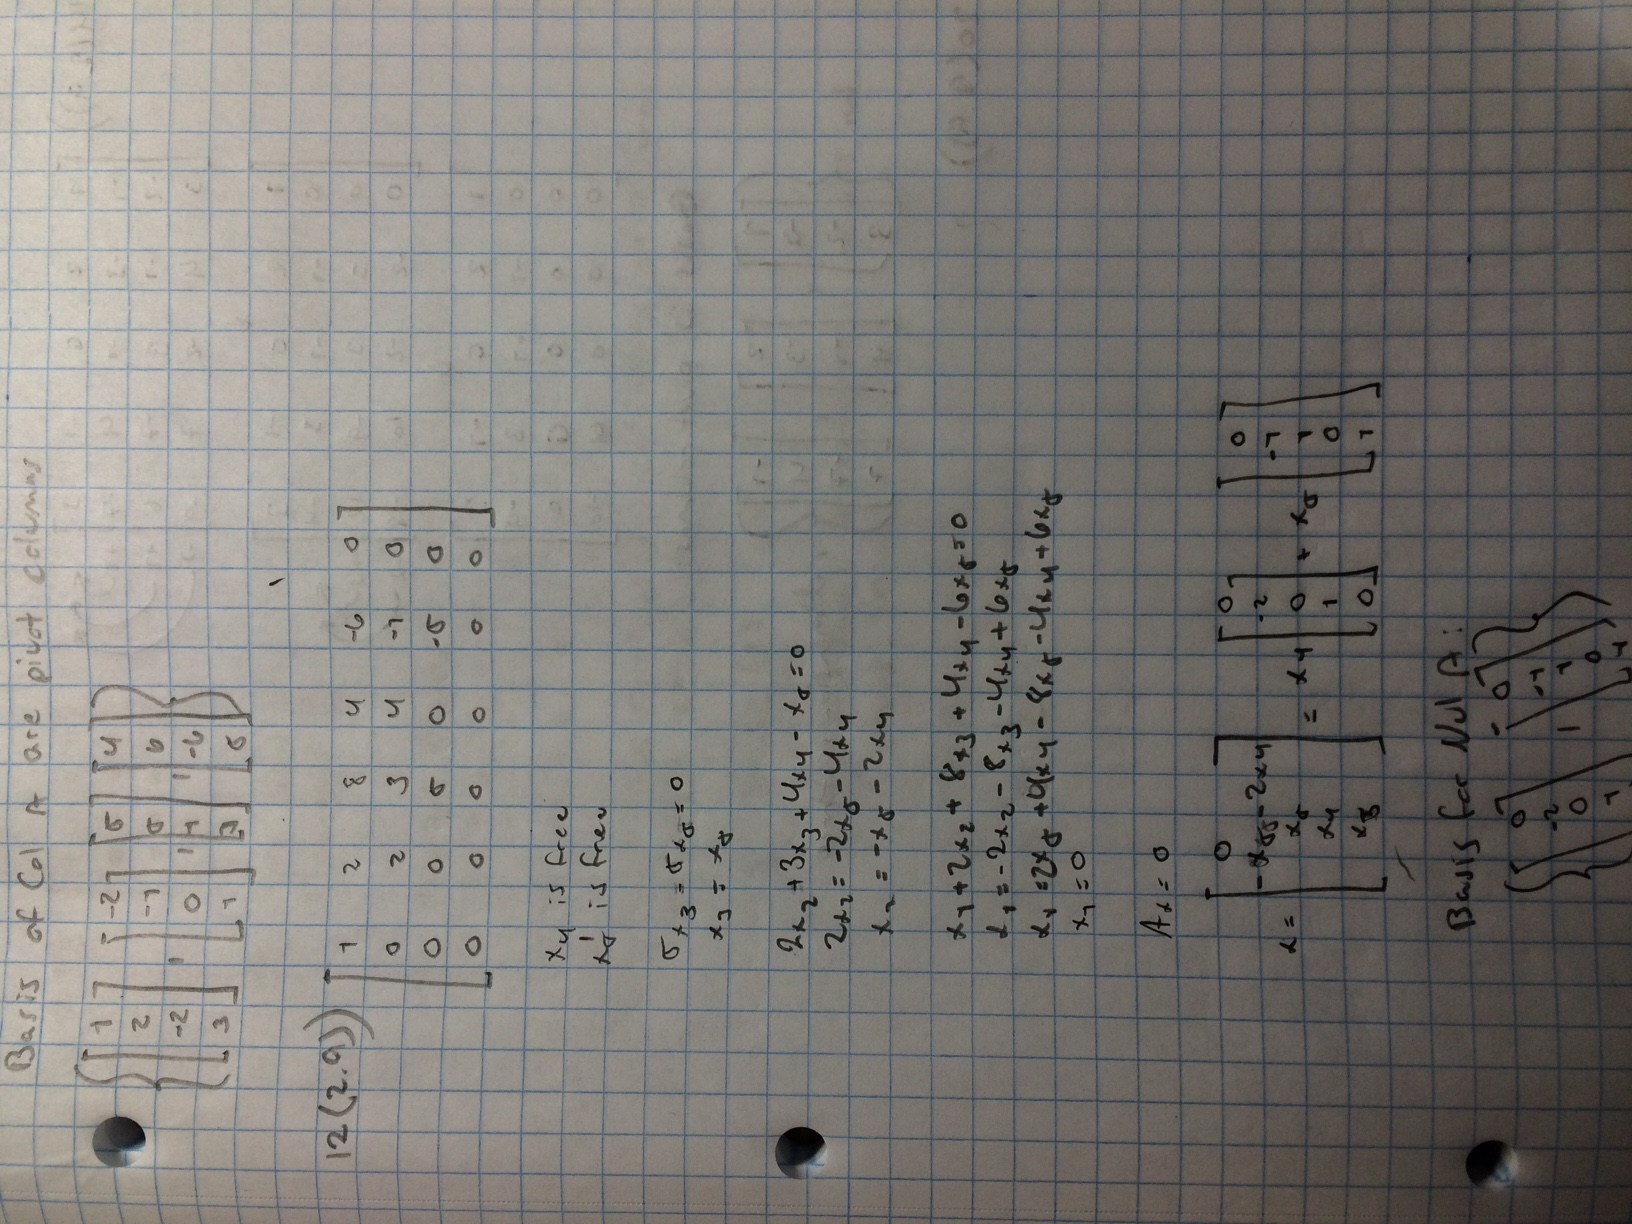 Basis of Col A are pivot columns
{ [1 2 -2 3], [-2 -1 0 1], [5 5 1 3], [4 6 -6 5] }
12(2.9))
1 2 8 4 -6 0
0 2 3 4 -1 0
0 0 5 0 -5 0
0 0 0 0 0 0
x4 is free
x5 is free
5x3 = 5x5 = 0
x3 = x5
2x2 + 3x3 + 4x4 - x5 = 0
2x2 = -2x5 - 4x4
x2 = -x5 - 2x4
x1 + 2x2 + 8x3 + 4x4 - 6x5 = 0
x1 = -2x2 - 8x3 - 4x4 + 6x5
x1 = 2x5 + 4x4 - 8x5 - 4x4 + 6x5
x1 = 0
Ax = 0
x = [0 -x5-2x4 x5 x4 x5] = x4 [0 -2 0 1 0] + x5 [0 -1 1 0 1]
Basis for Nul A:
{ [0 -2 0 1], [0 -1 1 0 1] }